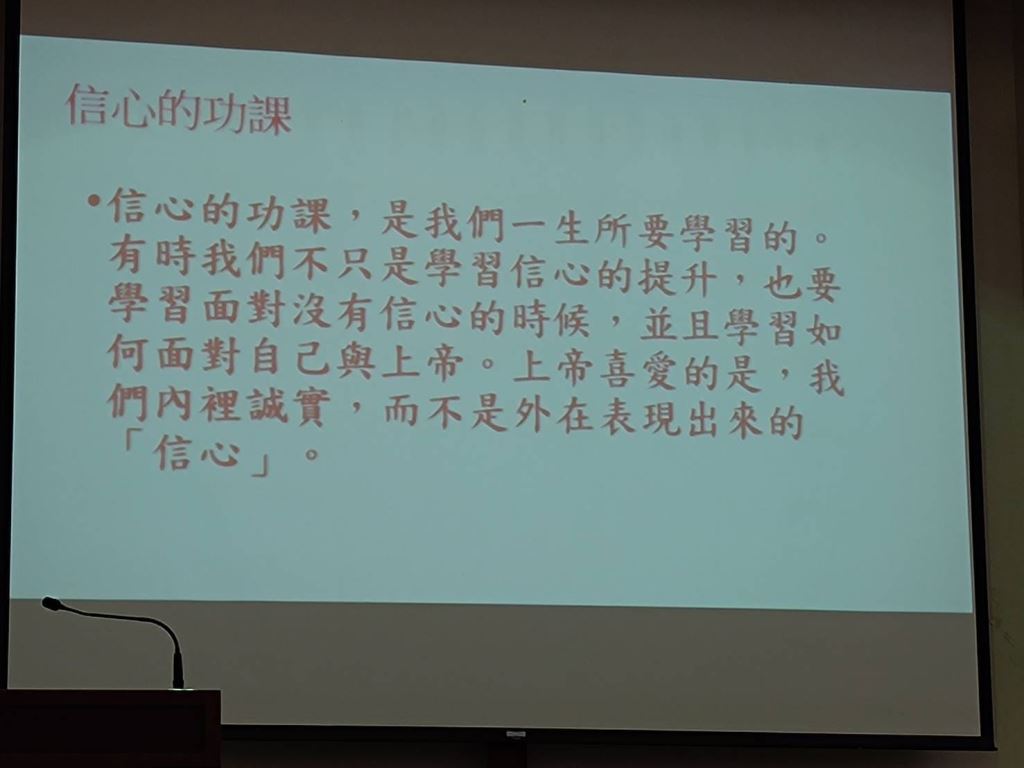 信心的功課
•信心的功課，是我們一生所要學習的。
有時我們不只是學習信心的提升，也要
學習面對沒有信心的時候，並且學習如
何面對自己與上帝。上帝喜愛的是，我
們內裡誠實，而不是外在表現出來的
「信心」。